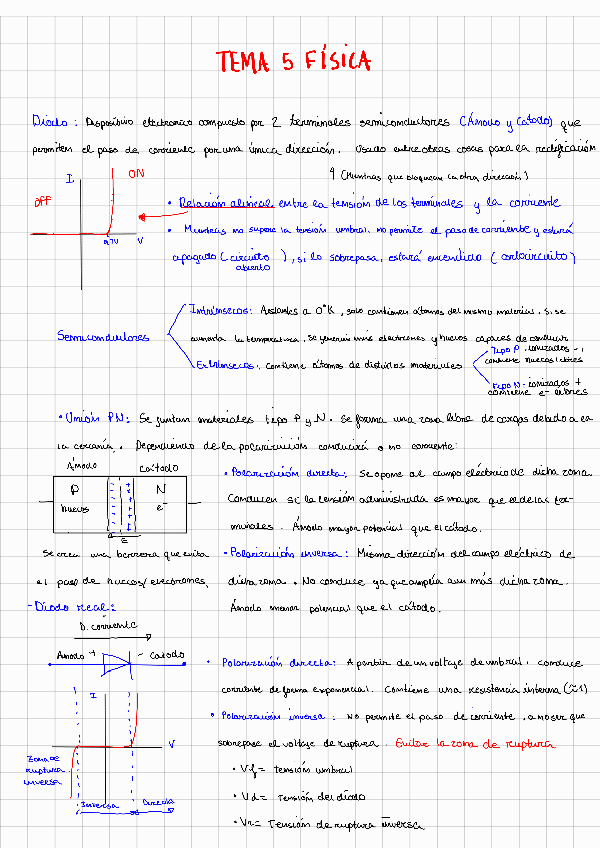 TEMA 5 FÍSICA
Diodo: Dispositivo electronico compuesto por 2 terminales semiconductores (Ánodo y Cátodo) que
permiten el paso de corriente por una única dirección. Usado entre otras cosas para la rectificación
I
ON
(Mientras que bloquean la otra dirección)
OFF
• Relación alineal entre la tensión de los terminales y la corriente
• Mientras no supere la tensión umbral, no permite el paso de corriente y estará
0,7V V
apagado (circuito abierto), si lo sobrepasa, estará encendido (cortocircuito)
Intrínsecos: Aislantes a 0°K, solo contienen átomos del mismo material. Si se
Semiconductores
aumenta la temperatura, se generan más electrones y huecos capaces de conducir
Extrínsecos: contiene átomos de distintos materiales
Tipo P: ionizados -,
contiene huecos libres
Tipo N: ionizados +
contiene e- libres
• Unión PN: Se juntan materiales tipo P y N. Se forma una zona libre de cargas debido a
la cercanía. Dependiendo de la polarización conducirá o no corriente:
Ánodo cátodo
P N
huecos e-
E
• Polarización directa: Se opone al campo eléctrico de dicha zona.
Conducen si la tensión administrada es mayor que el de las ter-
minales. Ánodo mayor potencial que el cátodo.
Se crea una barrera que evita
el paso de huecos/electrones.
• Polarización inversa: Misma dirección del campo eléctrico de
dicha zona. No conduce ya que amplía aun más dicha zona.
Ánodo menor potencial que el cátodo.
- Diodo real:
D. corriente
Ánodo + - Catodo
• Polarización directa: A partir de un voltaje de umbral, conduce
corriente de forma exponencial. Contiene una resistencia interna
• Polarización inversa: No permite el paso de corriente, a no ser que
sobrepase el voltaje de ruptura. Evitar la zona de ruptura
I
V
Zona de
ruptura
inversa
Inversa Directa
• Vf = tensión umbral
• Vd = Tensión del diodo
• Vr = Tensión de ruptura inversa